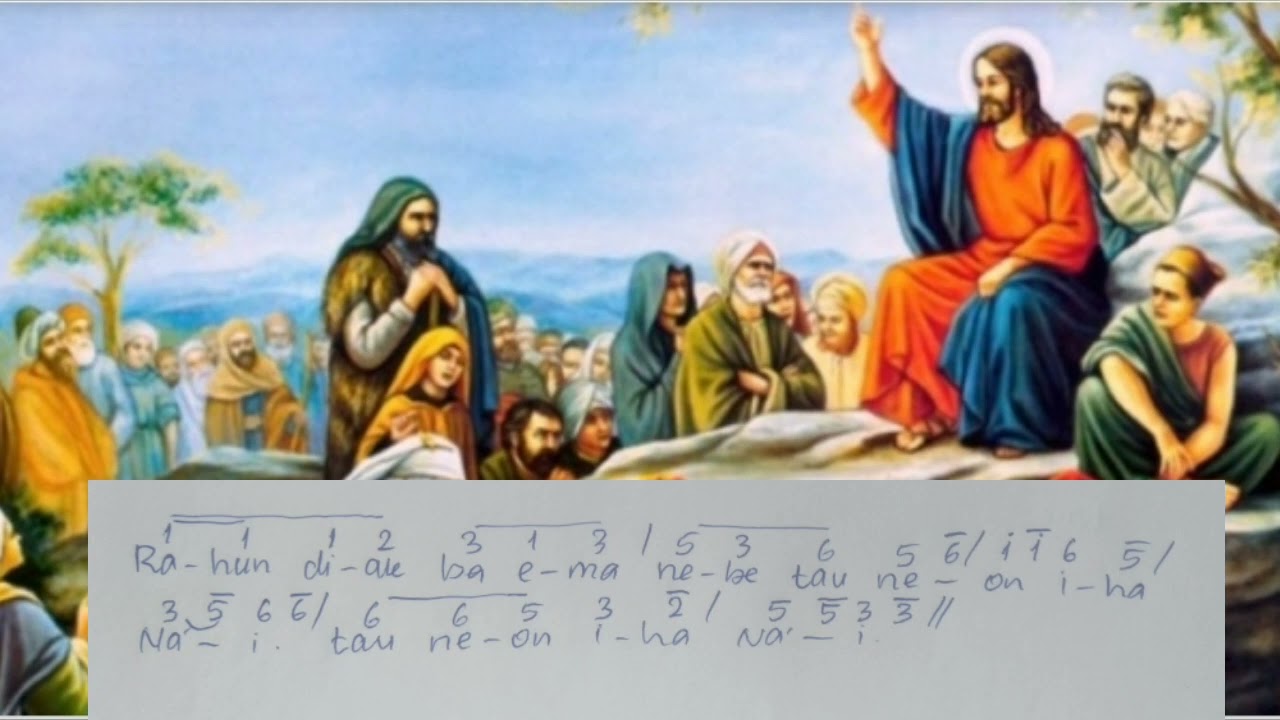 1 1 1 2 3 1 3 / 5 3 6 5 6̅ / i i̅ 6 5̅ /
Ra-hun di-ak ba e-ma ne-be tau ne-on i-ha
3 5̅ 6 6̅ / 6 6 5 3 2̅ / 5 5̅ 3 3̅ //
Ná-i. tau ne-on i-ha Ná-i.